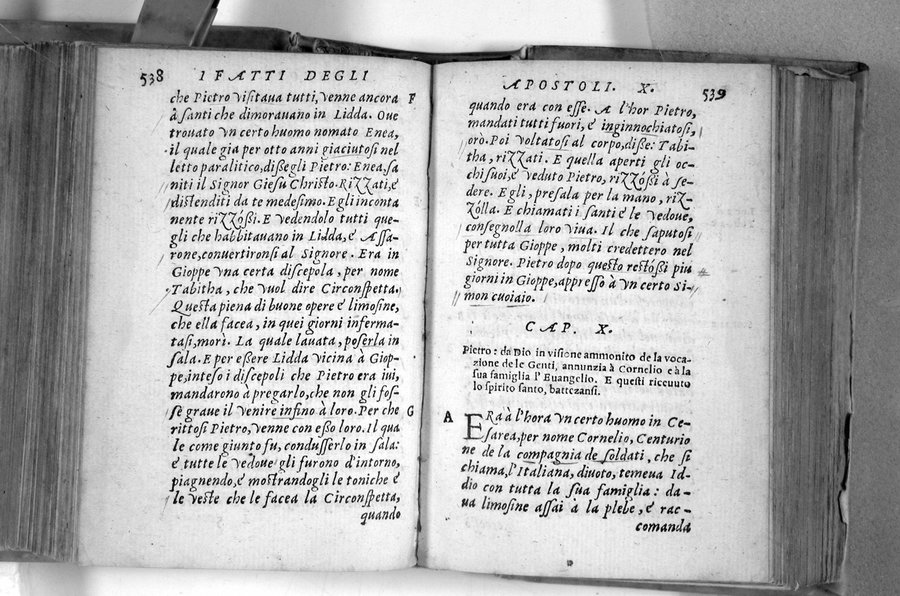 538 I FATTI DEGLI
che Pietro visitaua tutti, venne ancora F
à santi che dimorauano in Lidda. Oue
trouato vn certo huomo nomato Enea,
il quale gia per otto anni giaciutosi nel
letto paralitico, dißegli Pietro: Enea, sa
niti il Signor Giesu Christo. RiZZati, é
distenditi da te medesimo. Egli inconta
nente riZZóßi. E vedendolo tutti que-
gli che habbitauano in Lidda, é Assa-
rone, conuertironsi al Signore. Era in
Gioppe vna certa discepola, per nome
Tabitha, che vuol dire Circonspetta.
Questa piena di buone opere é limosine,
che ella facea, in quei giorni inferma-
tasi, morì. La quale lauata, poserla in
sala. E per eßere Lidda vicina à Giop-
pe, inteso i discepoli che Pietro era iui,
mandarono à pregarlo, che non gli fos-
se graue il venire infino à loro. Per che G
rittosi Pietro, venne con eßo loro. Il qua
le come giunto fu, condusserlo in sala:
é tutte le vedoue gli furono d'intorno,
piagnendo, é mostrandogli le toniche é
le veste che le facea la Circonspetta,
quando
APOSTOLI. X. 539
quando era con esse. A l'hor Pietro,
mandati tutti fuori, é inginnochiatosi,
orò. Poi voltatosi al corpo, diße: Tabi-
tha, riZZati. E quella aperti gli oc-
chi suoi, é veduto Pietro, riZZóßi à se-
dere. Egli, presala per la mano, riZ-
Zólla. E chiamati i santi é le vedoue,
consegnolla loro viua. Il che saputosi
per tutta Gioppe, molti credettero nel
Signore. Pietro dopo questo restóßi piu
giorni in Gioppe, appresso à vn certo Si-
mon cuoiaio.
CAP. X.
Pietro: da Dio in visione ammonito de la voca-
zione de le Genti, annunzia à Cornelio e à la
sua famiglia l'Euangelio. E questi riceuuto
lo spirito santo, battezansi.
A ERa à l'hora vn certo huomo in Ce-
sarea, per nome Cornelio, Centurio
ne de la compagnia de soldati, che si
chiama, l'Italiana, diuoto, temeua Id-
dio con tutta la sua famiglia: da-
ua limosine assai à la plebe, é rac-
comanda